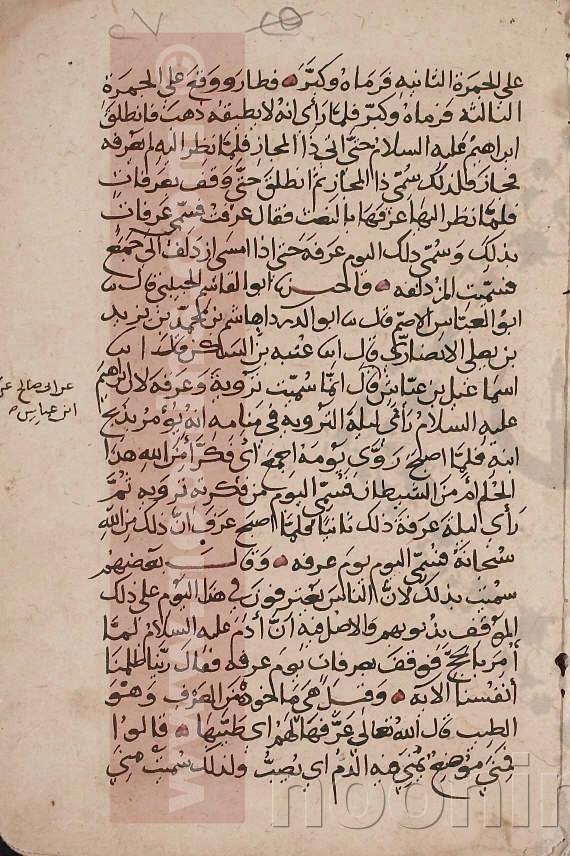 على الجمرة الثانيه فرماه وكبّر فطار ووقع على الجمرة
الثالثه فرماه وكبّر فلمّا رأى انه لا يطيقه ذهب فانطلق
ابراهيم عليه السلام حتى اتى ذا المجاز فلمّا نظر اليه لم يعرفه
فجاز فلذلك سُمّي ذا المجاز ثم انطلق حتى وقف بعرفات
فلمّا نظر اليها عرفها بالنعت فقال عرفت فسُمّي عرفات
بذلك وسُمّي ذلك اليوم عرفه حتى اذا امسى ازدلف الى جمع
فسُمّيت المزدلفه ابو القاسم الحبيبي قال
ابو العباس الاصمّ قال ابو الدرداهاشم بن محمد بن يزيد
بن يعلى الانصاري قال عتبه بن السكن قال
اسماعيل بن عياش قال انما سُمّيت تروية وعرفة لان ابرهيم
عليه السلام رأى ليلة الترويه في منامه انه يؤمر بذبح
ابنه فلمّا اصبح روّى يومه اجمع اي فكّر أمر الله هذا
الحلم ام من الشيطان فسُمّي اليوم من فكرته ترويه ثم
رأى ليلة عرفة ذلك ثانيا فلمّا اصبح عرف ان ذلك من الله
سبحانه فسُمّي اليوم يوم عرفه وقال بعضهم
سُميت بذلك لان الناس يعترفون في هذا اليوم على ذلك
الموقف بذنوبهم والاصل فيه انّ آدم عليه السلام لما
أمر بالحج فوقف بعرفات يوم عرفه فقال ربّنا ظلمنا
أنفسنا الايه وقيل هي مأخوذه من العَرْف وهو
الطيب قال الله تعالى عرّفها لهم اي طيّبها قالوا
فمنى موضع يُمنى فيه الدم اي يُصبّ ولذلك سُميت منى
عن ابي صالح عن
ابن عباس
www.
noonin